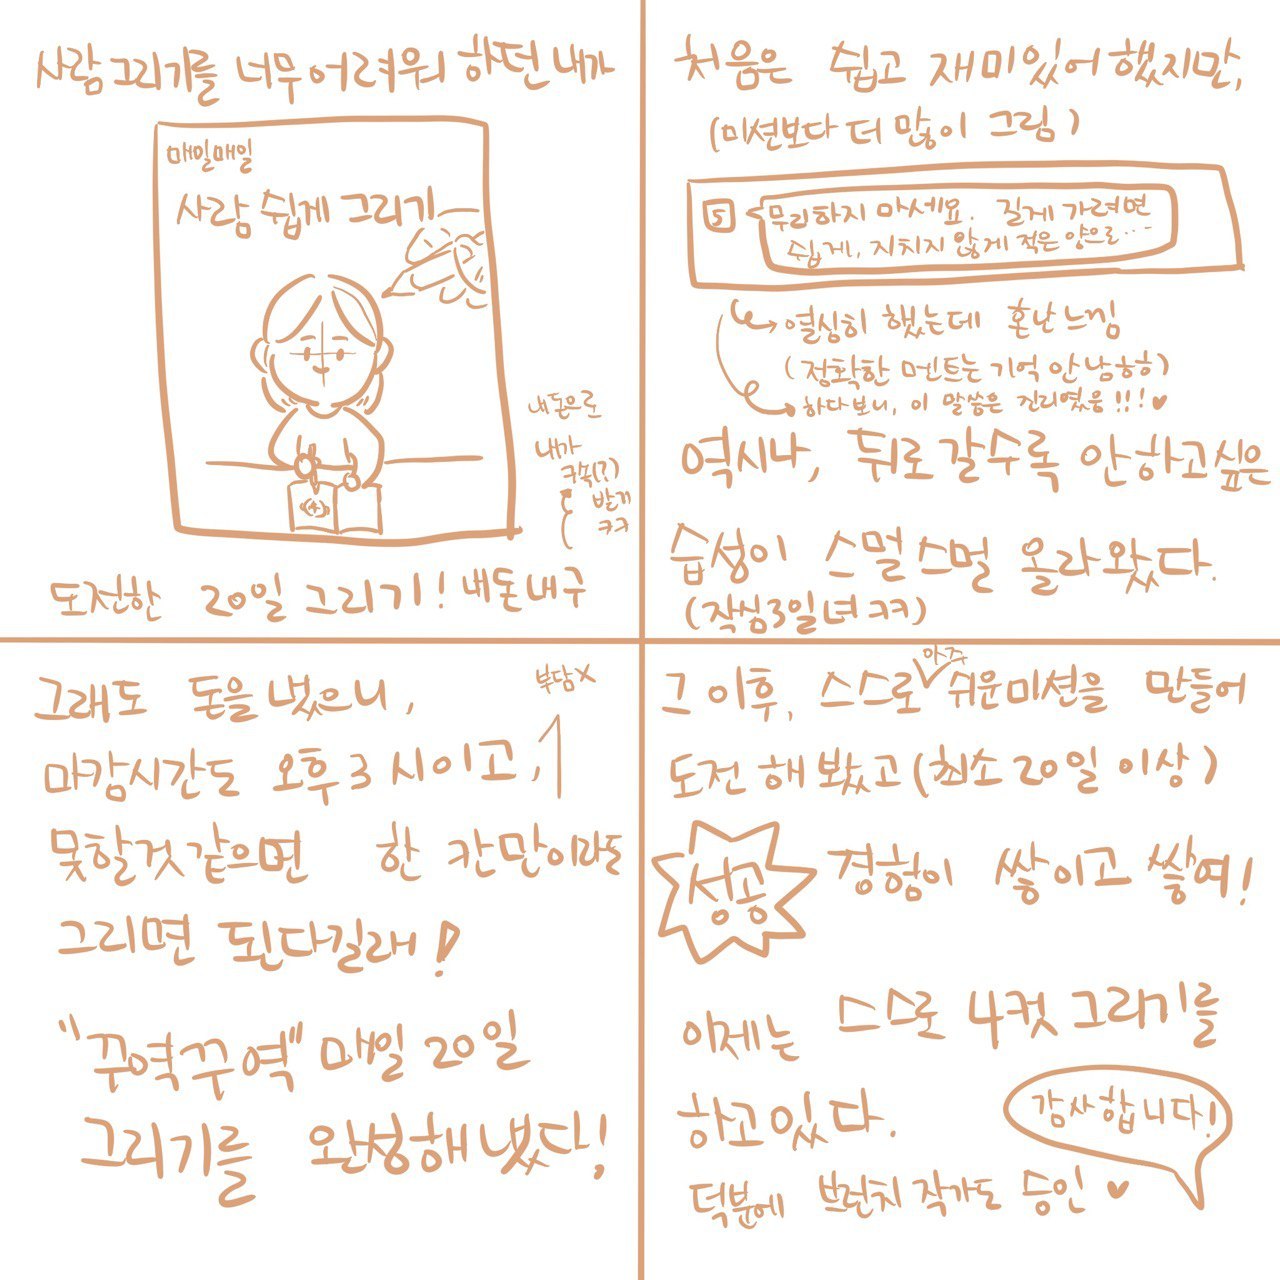 사람그리기를 너무어려워 하던내가
매일매일
사람 쉽게 그리기
내돈으로
내가
구속(?)
받기
ㅋㅋ
도전한 20일 그리기! 내돈내구
처음은 쉽고 재미있어했지만,
(미션보다 더 많이 그림)
무리하지 마세요. 길게 가려면
쉽게, 지치지 않게 적은 양으로...
열심히 했는데 혼난느낌
(정확한 멘트는 기억 안남ㅎㅎ)
하다보니, 이 말씀은 진리였음!!!♥
역시나, 뒤로갈수록 안하고싶은
습성이 스멀스멀 올라왔다.
(작심3일녀ㅋㅋ)
그래도 돈을냈으니,
부담x
마감시간도 오후3시이고,
못할것같으면 한 칸만이라도
그리면 된다길래!
"꾸역꾸역" 매일 20일
그리기를 완성해냈다!
그 이후, 스스로 아주 쉬운미션을 만들어
도전해봤고(최소20일이상)
성공
경험이 쌓이고 쌓여!
이제는 스스로 4컷 그리기를
하고있다.
감사합니다!
덕분에 브런치작가도 승인♥